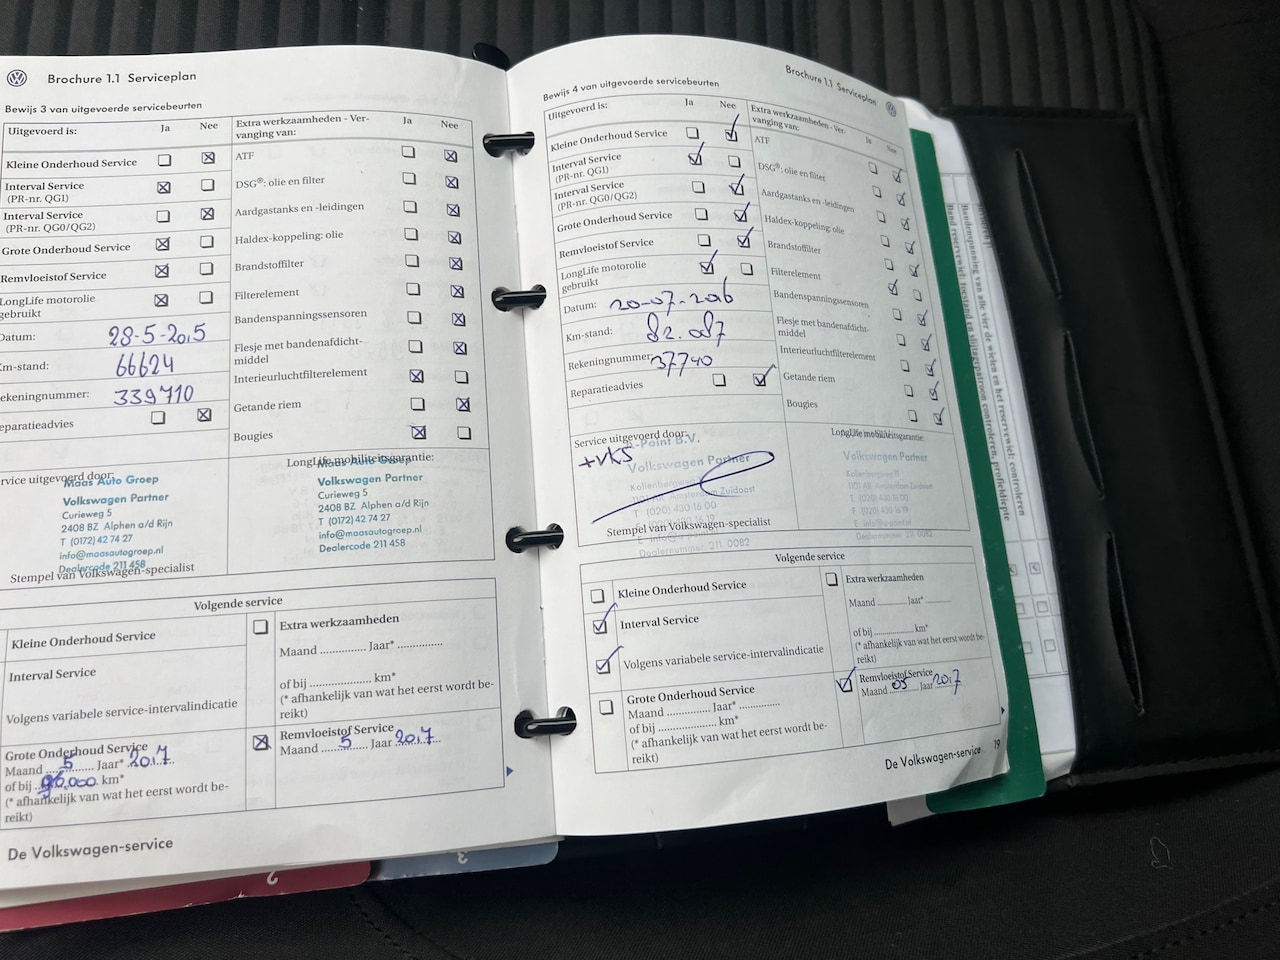 Brochure 1.1 Serviceplan
Bewijs 3 van uitgevoerde servicebeurten
Uitgevoerd is: Ja Nee
Kleine Onderhoud Service
Interval Service
(PR-nr. QG1)
Interval Service
(PR-nr. QG0/QG2)
Grote Onderhoud Service
Remvloeistof Service
LongLife motorolie
gebruikt
Datum: 28-5-2015
Km-stand: 66624
Rekeningnummer: 339710
Reparatieadvies
Extra werkzaamheden - Ver-
vanging van: Ja Nee
ATF
DSG®: olie en filter
Aardgastanks en -leidingen
Haldex-koppeling: olie
Brandstoffilter
Filterelement
Bandenspanningssensoren
Flesje met bandenafdicht-
middel
Interieurluchtfilterelement
Getande riem
Bougies
Service uitgevoerd door:
Maas Auto Groep
Volkswagen Partner
Curieweg 5
2408 BZ Alphen a/d Rijn
T (0172) 42 74 27
info@maasautogroep.nl
Dealercode 211 458
Stempel van Volkswagen-specialist
LongLife mobiliteitsgarantie:
Maas Auto Groep
Volkswagen Partner
Curieweg 5
2408 BZ Alphen a/d Rijn
T (0172) 42 74 27
info@maasautogroep.nl
Dealercode 211 458
Volgende service
Kleine Onderhoud Service
Interval Service
Volgens variabele service-intervalindicatie
Grote Onderhoud Service
Maand 5 Jaar* 2017
of bij 96.000 km*
(* afhankelijk van wat het eerst wordt be-
reikt)
Extra werkzaamheden
Maand ............ Jaar* ..............
of bij .................. km*
(* afhankelijk van wat het eerst wordt be-
reikt)
Remvloeistof Service
Maand 5 Jaar 2017
De Volkswagen-service
2
3
Brochure 1.1 Serviceplan
Bewijs 4 van uitgevoerde servicebeurten
Uitgevoerd is: Ja Nee
Kleine Onderhoud Service
Interval Service
(PR-nr. QG1)
Interval Service
(PR-nr. QG0/QG2)
Grote Onderhoud Service
Remvloeistof Service
LongLife motorolie
gebruikt
Datum: 20-07-2016
Km-stand: 82.087
Rekeningnummer: 37740
Reparatieadvies
Extra werkzaamheden - Ver-
vanging van: Ja Nee
ATF
DSG®: olie en filter
Aardgastanks en -leidingen
Haldex-koppeling: olie
Brandstoffilter
Filterelement
Bandenspanningssensoren
Flesje met bandenafdicht-
middel
Interieurluchtfilterelement
Getande riem
Bougies
Service uitgevoerd door:
-Point B.V.
+VKS
Volkswagen Partner
1101 AB, Amsterdam Zuidoost
T (020) 430 16 00
Dealernummer: 211 0082
Stempel van Volkswagen-specialist
LongLife mobiliteitsgarantie:
Volkswagen Partner
1101 AB, Amsterdam Zuidoost
T (020) 430 16 00
Volgende service
Kleine Onderhoud Service
Interval Service
Volgens variabele service-intervalindicatie
Grote Onderhoud Service
Maand ............ Jaar* ..............
of bij .................. km*
(* afhankelijk van wat het eerst wordt be-
reikt)
Extra werkzaamheden
Maand ........... Jaar* ...........
of bij ................ km*
(* afhankelijk van wat het eerst wordt be-
reikt)
Remvloeistof Service
Maand 05 Jaar 2017
De Volkswagen-service 19
Bandenspanning van alle vier de wielen en het reservewiel: controleren